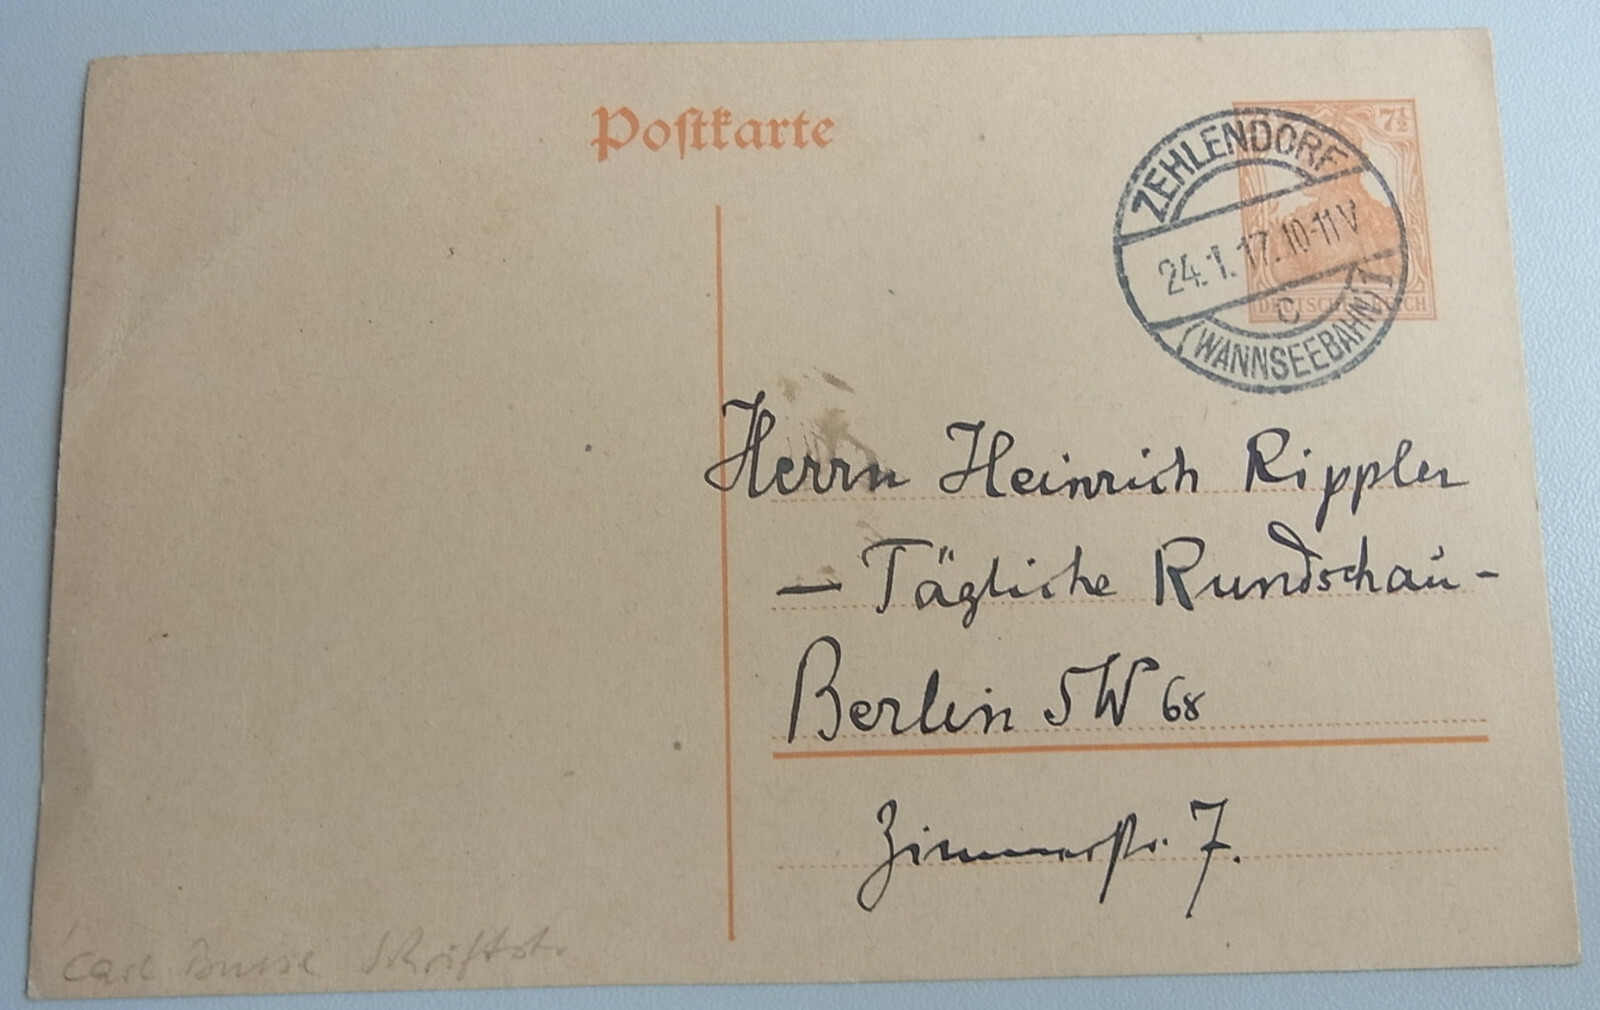 Postkarte
7½
DEUTSCHES REICH
ZEHLENDORF
24.1.17.10-11V
C
(WANNSEEBAHN)
Herrn Heinrich Rippler
— Tägliche Rundschau -
Berlin SW 68
Zimmerstr. 7.
Carl Busse Schriftst.